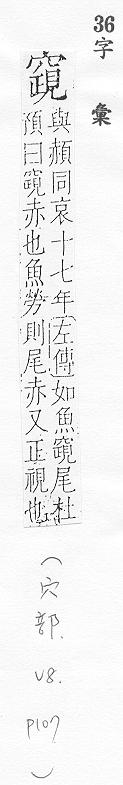 36字彙
竀
與赬同哀十七年左傳如魚竀尾杜
預曰竀赤也魚勞則尾赤又正視也
(穴部. V8. P107)